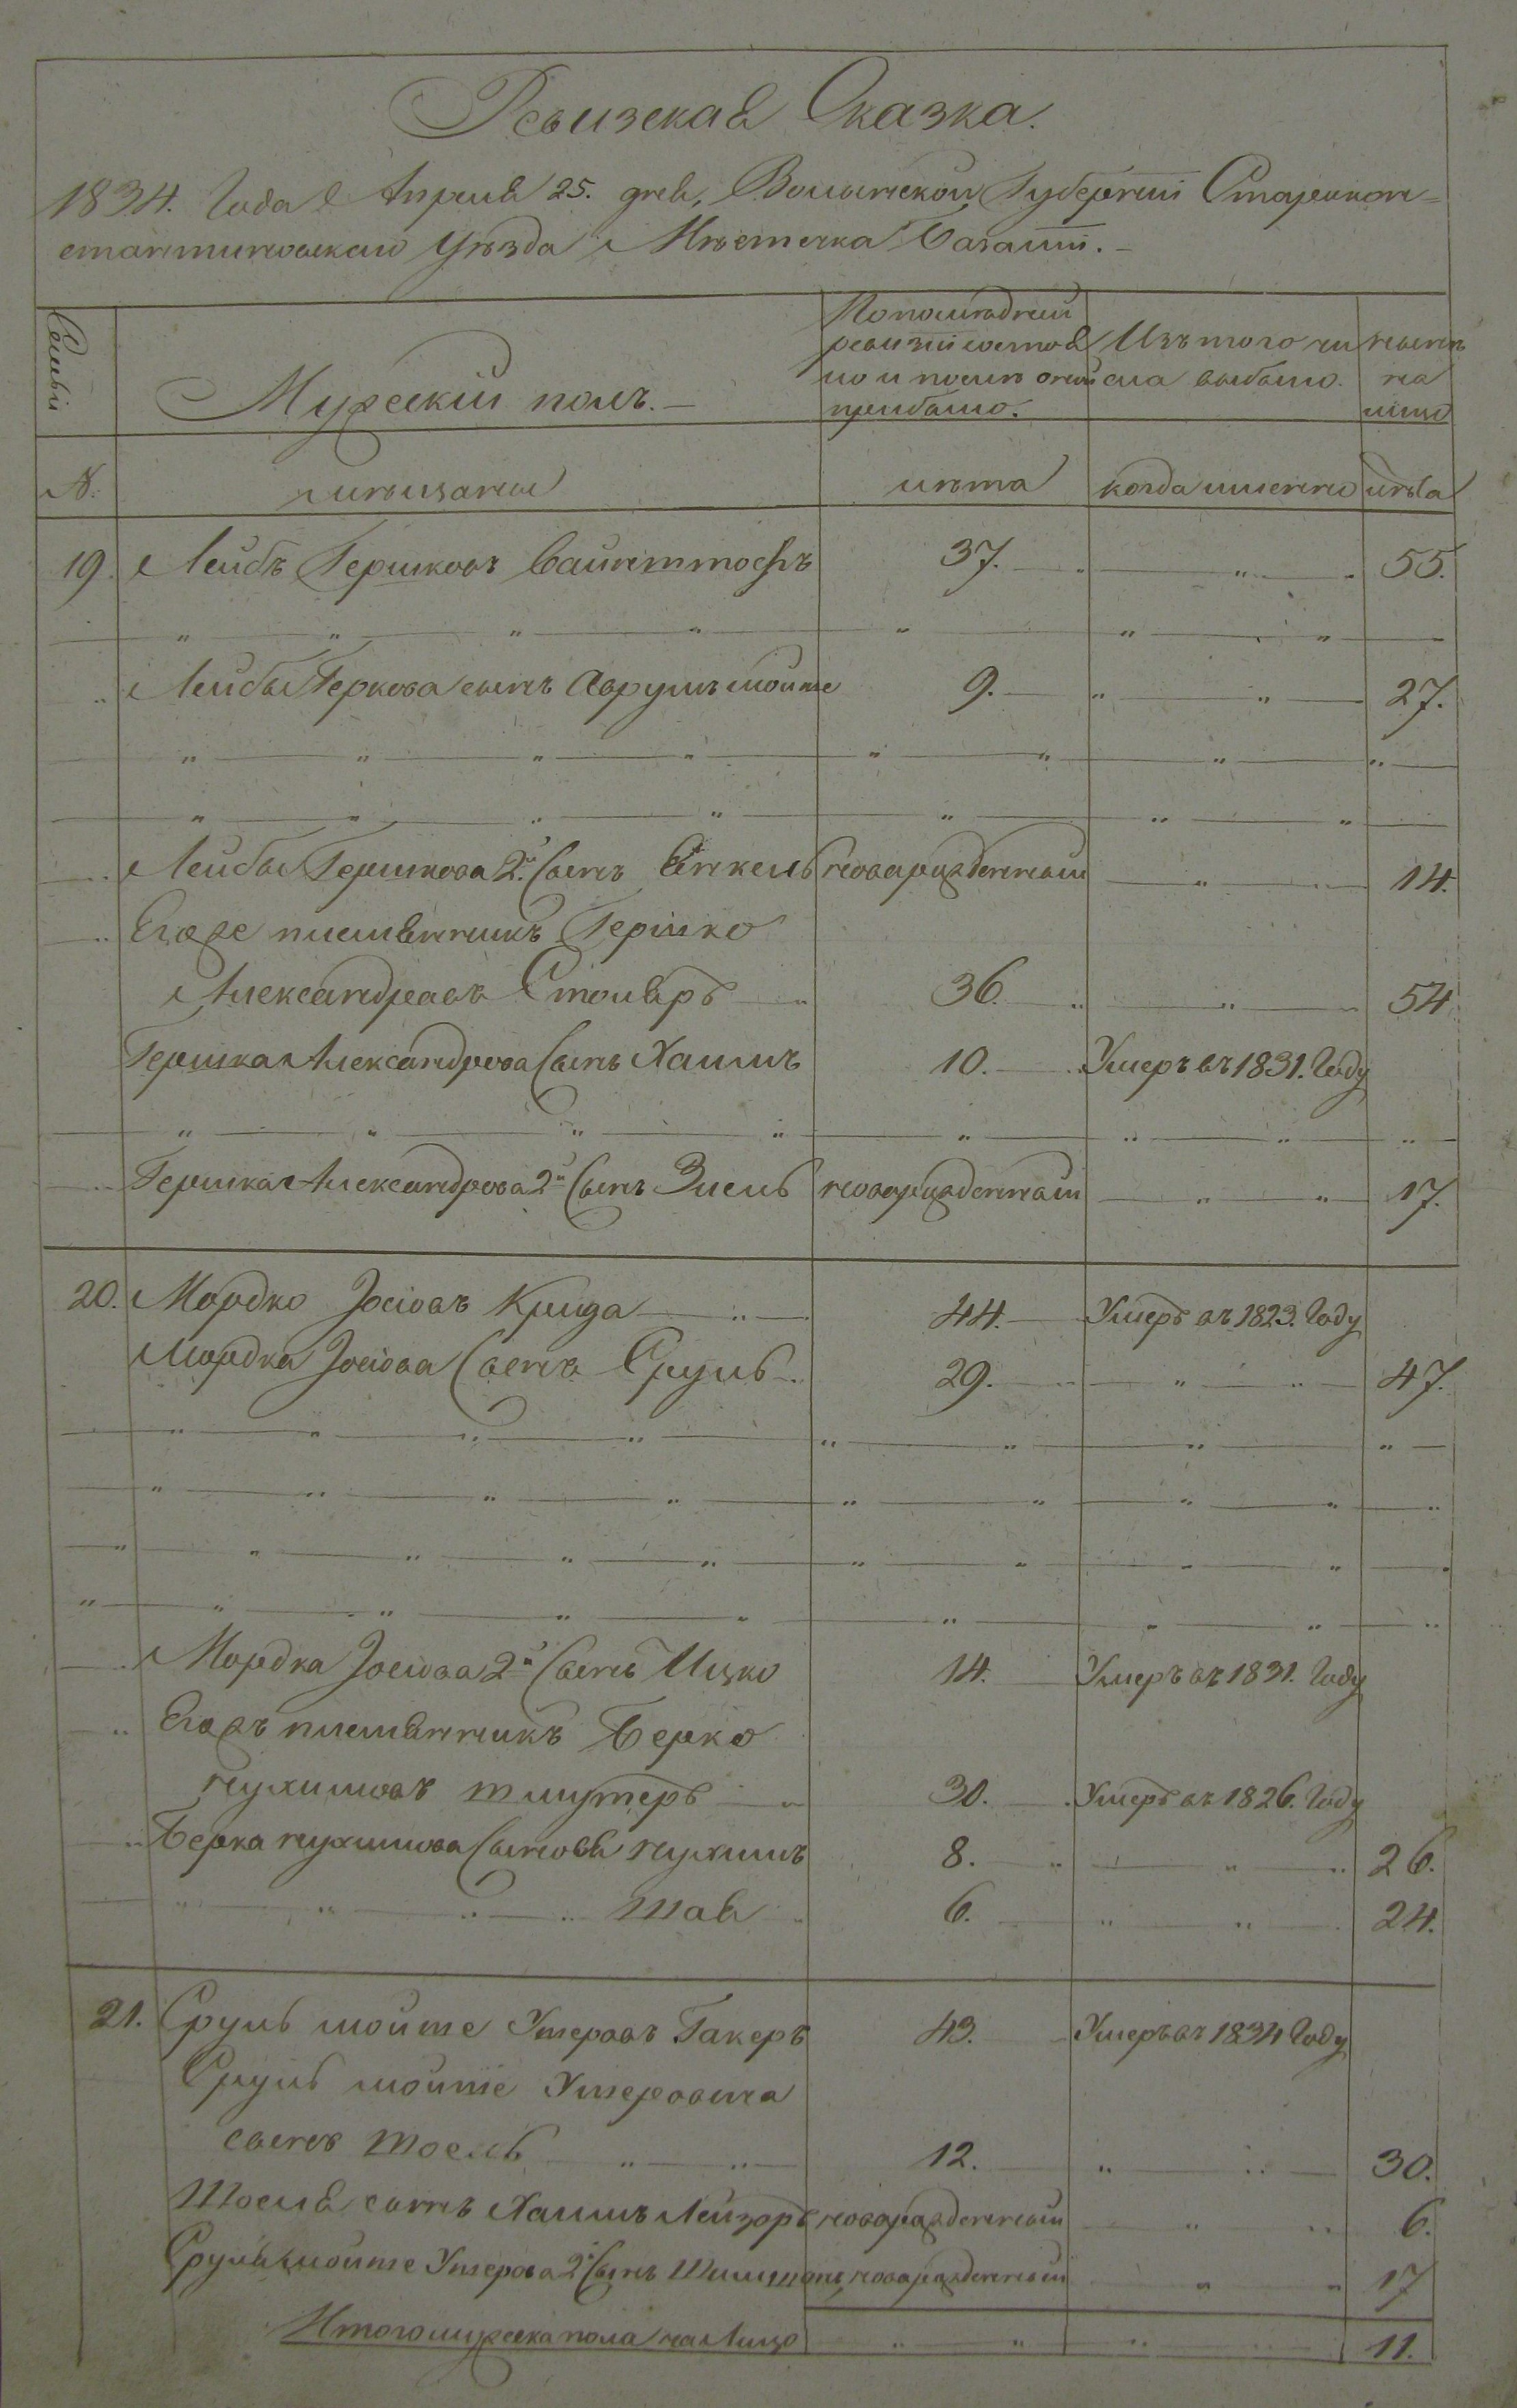 Ревизская Сказка.
1834. Года Апреля 25. дня, Волынской Губернии Старокон-
стантиновскаго Уезда Местечка Базалии.
Семьи
Мужеский полъ.
По последней
ревизии состоя
ло и после оной
прибыло.
Изъ того чи
сла выбыло.
ныне
на
лицо
N.
лета
когда именно
лета
19. Лейбъ Гершковъ 37. 55.
Лейбы Геркова сынъ Аврумъ мойше 9. 27.
Лейбы Гершкова 2й Сынъ Янкель новорожденный 14.
Егоже племянникъ Гершко
Александровъ Столяръ 36. 54
Гершка Александрова Сынъ Хаимъ 10. Умеръ въ 1831. Году
Гершка Александрова 2й Сынъ Зисель новорожденный 17.
20. Мордко Іосіовъ 44. Умеръ въ 1823. Году
Мордка Іосіова Сынъ Сруль 29. 47.
Мордка Іосіова 2й Сынъ Ицко 14. Умеръ въ 1831. Году
Егожъ племянникъ Берко
нухимовъ 30. Умеръ въ 1826. Году
Берка нухимова Сыновья нухимъ 8. 26.
Шая 6. 24.
21. Сруль мойше Ушеровъ Гакеръ 43. Умеръ въ 1834 Году
Сруль мойше Ушеровича
сынъ Шоель 12. 30.
Шоеля сынъ Хаимъ Лейзоръ новорожденный 6.
Сруля мойше Ушерова 2й Сынъ новорожденный 17
Итого мужеска пола на Лицо 11.